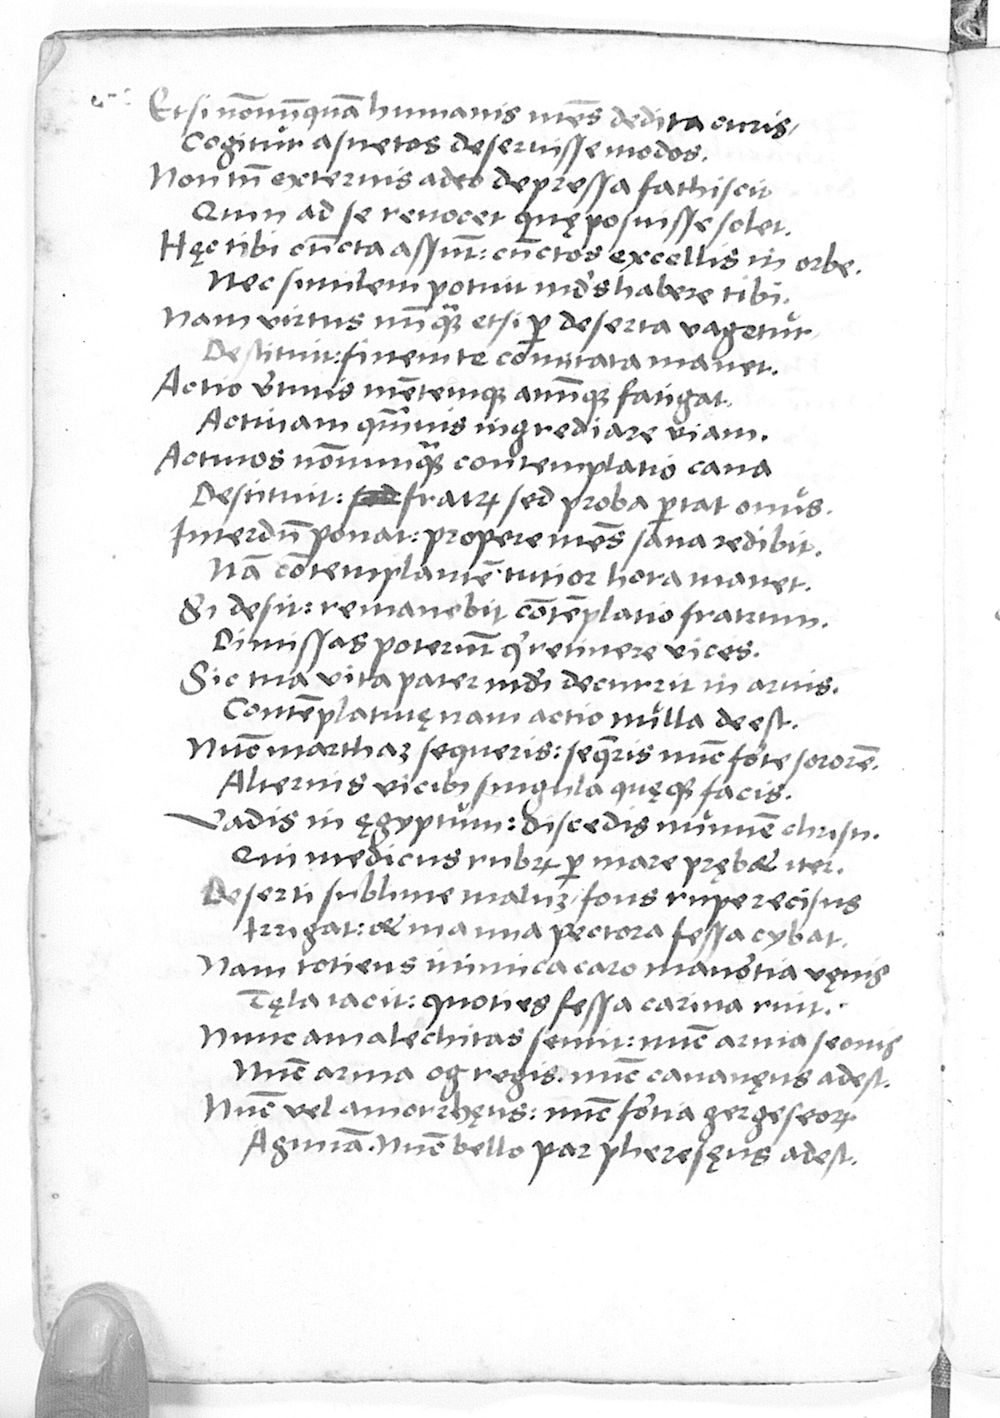 Et si nōnūquā humanis mēs dedita curis,
Cogitur asuetos deseruisse modos.
Non tn̄ externis adeo depressa fathiscit
Quin ad se reuocet quę posuisse solet.
Hęc tibi cūcta assūt: cūctos excellis in orbe.
Nec similem potuit mūds habere tibi.
Nam virtus nūqȝ etsi ꝑ deserta vagetur
Destituit: finem te comitata manet.
Actio v̄tutis mētemqȝ animqȝ fatigat.
Actiuam qmuis ingrediare viam.
Actiuos nōnunqȝ contemplatio cana
Destituit: fratꝝ sed proba ꝑtat onus.
Interdū ponat: propere mēs sana redibit.
Nā cōtemplantē tutior hora manet.
Si desit: remanebit cōtēplatio fratrum.
Dimissas poterunt retinere vices.
Sic tua vita pater mūdi decurrit in aruis.
Contēplatiuę nam actio nulla deest.
Nūc marthaȝ sequeris: seqris nūc forte sororē.
Alternis vicibȝ singula quęqȝ facis.
Vadis in ęgyptum: discedis numē christi.
Qui medicus rubꝝ ꝑ mare pręb& iter.
Deserti sublime maluȝ fons rupe recisus
Irrigat: & manna pectora fessa cybat.
Nam totiens inimica caro mauortia vęnis
Tęla iacit: quoties fessa carina ruit.
Nunc amalechitas sentit: nūc arma seonis
Nūc arma og regis. nūc cananęus adest.
Nūc vel amorrhęus: nūc fortia gergeseoꝝ
Agminā. Nūc bello par pheresęus adest.